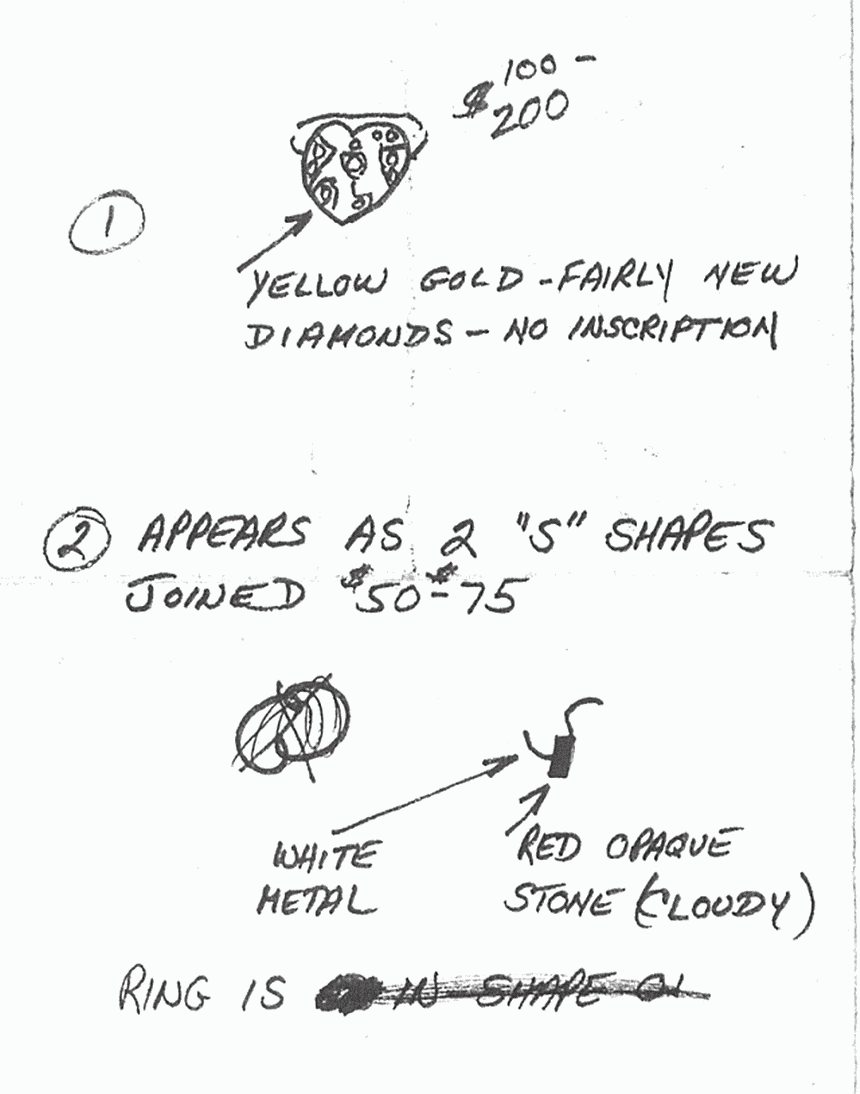 $100 -
200
1
YELLOW GOLD - FAIRLY NEW
DIAMONDS - NO INSCRIPTION
2 APPEARS AS 2 "S" SHAPES
JOINED $50-$75
WHITE
METAL
RED OPAQUE
STONE (CLOUDY)
RING IS IN SHAPE